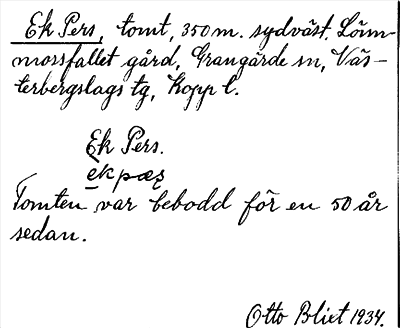 Ek Pers, tomt, 350 m. sydväst. Lönn-
mossfallet gård, Grangärde sn, Väs-
terbergslags tg, Kopp l.
Ek Pers.
ek pæṣ
Tomten var bebodd för en 50 år
sedan.
Otto Blixt 1934.